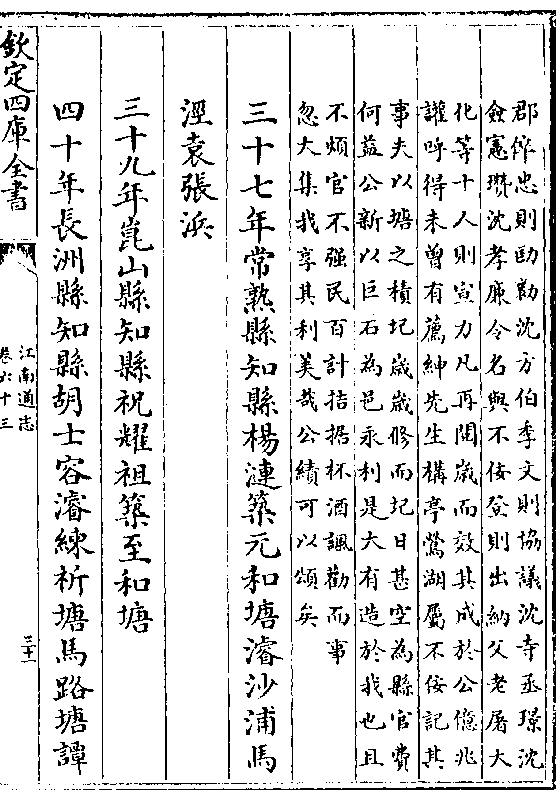 郡倅忠則勖勷沈方伯季文則協議沈寺丞璟沈
僉憲瓚沈孝廉令名與不佞登則出納父老屠大
化等十人則宣力凡再閱歲而效其成於公億兆
讙呼得未曽有薦紳先生構亭鶯湖屬不佞記其
事夫以塘之積圮歲歲修而圮日甚空為縣官費
何益公新以巨石為邑永利是大有造於我也且
不煩官不强民百計拮据杯酒諷勸而事
忽大集我享其利美哉公績可以頌矣
三十七年常熟縣知縣楊漣築元和塘濬沙浦馬
涇袁張浜
三十九年崑山縣知縣祝耀祖築至和塘
四十年長洲縣知縣胡士容濬練祈塘馬路塘譚
欽定四庫全書
江南通志
卷六十三
三十二